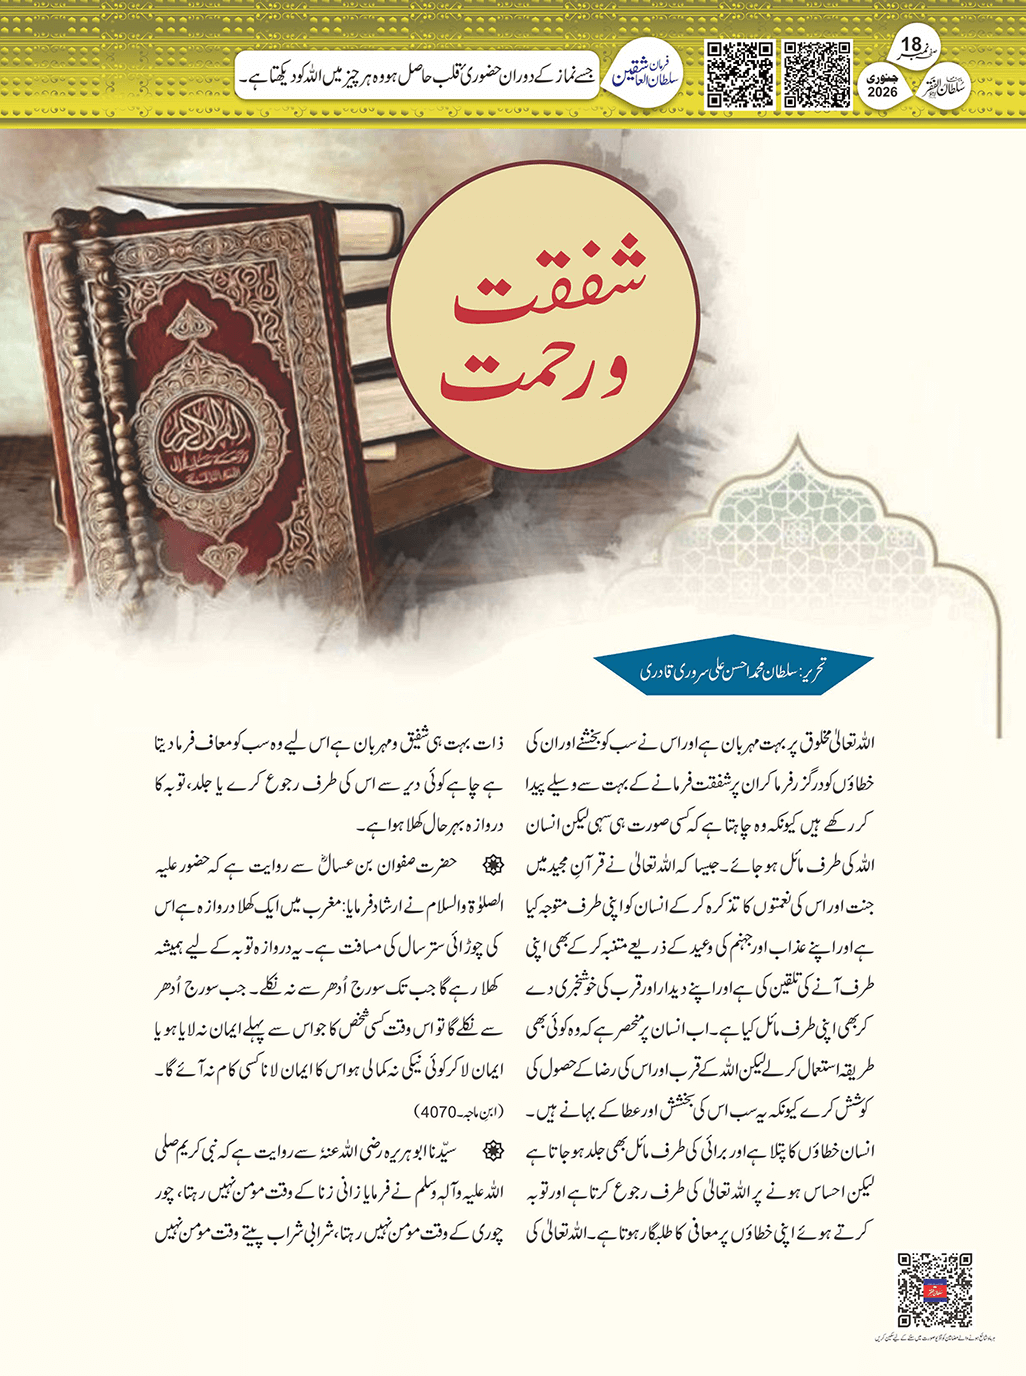 صفحہ نمبر 18
سلطان الفقر
جنوری
2026
فرمان
سلطان العاشقین
جسے نماز کے دوران حضوریٔ قلب حاصل ہو وہ ہر چیز میں اللہ کو دیکھتا ہے۔
شفقت
و رحمت
تحریر: سلطان محمد احسن علی سروری قادری
اللہ تعالیٰ مخلوق پر بہت مہربان ہے اور اس نے سب کو بخشنے اور ان کی
خطاؤں کو درگزر فرما کر ان پر شفقت فرمانے کے بہت سے وسیلے پیدا
کر رکھے ہیں کیونکہ وہ چاہتا ہے کہ کسی صورت ہی سہی لیکن انسان
اللہ کی طرف مائل ہو جائے۔ جیسا کہ اللہ تعالیٰ نے قرآنِ مجید میں
جنت اور اس کی نعمتوں کا تذکرہ کر کے انسان کو اپنی طرف متوجہ کیا
ہے اور اپنے عذاب اور جہنم کی وعید کے ذریعے متنبہ کر کے بھی اپنی
طرف آنے کی تلقین کی ہے اور اپنے دیدار اور قرب کی خوشخبری دے
کر بھی اپنی طرف مائل کیا ہے۔ اب انسان پر منحصر ہے کہ وہ کوئی بھی
طریقہ استعمال کر لے لیکن اللہ کے قرب اور اس کی رضا کے حصول کی
کوشش کرے کیونکہ یہ سب اس کی بخشش اور عطا کے بہانے ہیں۔
انسان خطاؤں کا پتلا ہے اور برائی کی طرف مائل بھی جلد ہو جاتا ہے
لیکن احساس ہونے پر اللہ تعالیٰ کی طرف رجوع کرتا ہے اور توبہ
کرتے ہوئے اپنی خطاؤں پر معافی کا طلبگار ہوتا ہے۔ اللہ تعالیٰ کی
ذات بہت ہی شفیق و مہربان ہے اس لیے وہ سب کو معاف فرما دیتا
ہے چاہے کوئی دیر سے اس کی طرف رجوع کرے یا جلد، توبہ کا
دروازہ بہرحال کھلا ہوا ہے۔
حضرت صفوان بن عسالؓ سے روایت ہے کہ حضور علیہ
الصلوٰۃ والسلام نے ارشاد فرمایا: مغرب میں ایک کھلا دروازہ ہے اس
کی چوڑائی ستر سال کی مسافت ہے۔ یہ دروازہ توبہ کے لیے ہمیشہ
کھلا رہے گا جب تک سورج اُدھر سے نہ نکلے۔ جب سورج اُدھر
سے نکلے گا تو اس وقت کسی شخص کا جو اس سے پہلے ایمان نہ لایا ہو یا
ایمان لا کر کوئی نیکی نہ کما لی ہو اس کا ایمان لانا کسی کام نہ آئے گا۔
(ابنِ ماجہ۔ 4070)
سیّدنا ابو ہریرہ رضی اللہ عنہٗ سے روایت ہے کہ نبی کریم صلی
اللہ علیہ وآلہٖ وسلم نے فرمایا زانی زنا کے وقت مومن نہیں رہتا، چور
چوری کے وقت مومن نہیں رہتا، شرابی شراب پیتے وقت مومن نہیں